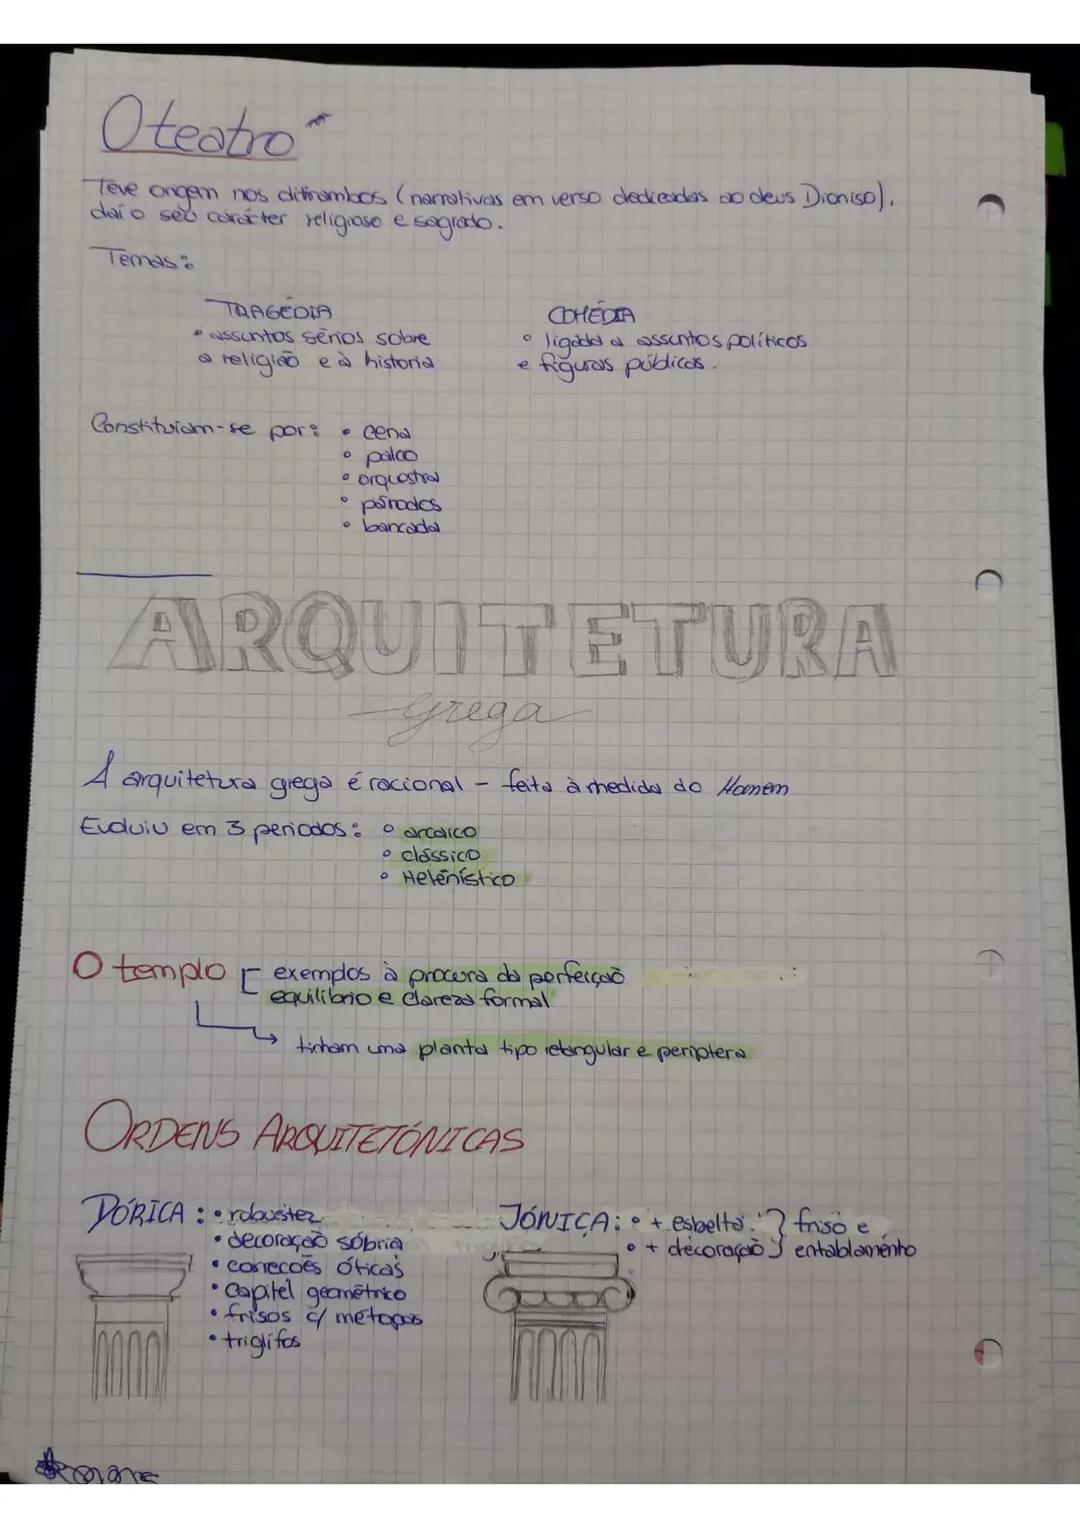 O teatro*
Teve origem nos ditirambos (narrativas em verso dedicadas ao deus Dioniso),
daí o seu carácter religioso e sagrado.
Temas:
TRAGÉDIA
• assuntos sérios sobre
a religião e à historia
COMÉDIA
• ligada a assuntos políticos
e figuras públicas.
Constituiam-se por: • cena
• palco
• orquestra
• párodos
• bancada
ARQUITETURA
grega
A arquitetura grega é racional - feita à medida do Homem
Evoluiu em 3 periodos: • arcaico
• clássico
• Helenístico
O templo [ exemplos à procura da perfeição
equilíbrio e clareza formal
→ tinham uma planta tipo retangular e periptera
ORDENS ARQUITETÓNICAS
DÓRICA: • robustez
• decoração sóbria
• correcões óticas
• capitel geométrico
• frisos c/ metopas
• triglifos
JÓNICA: • + esbelto } friso e
• + decoração } entablamento